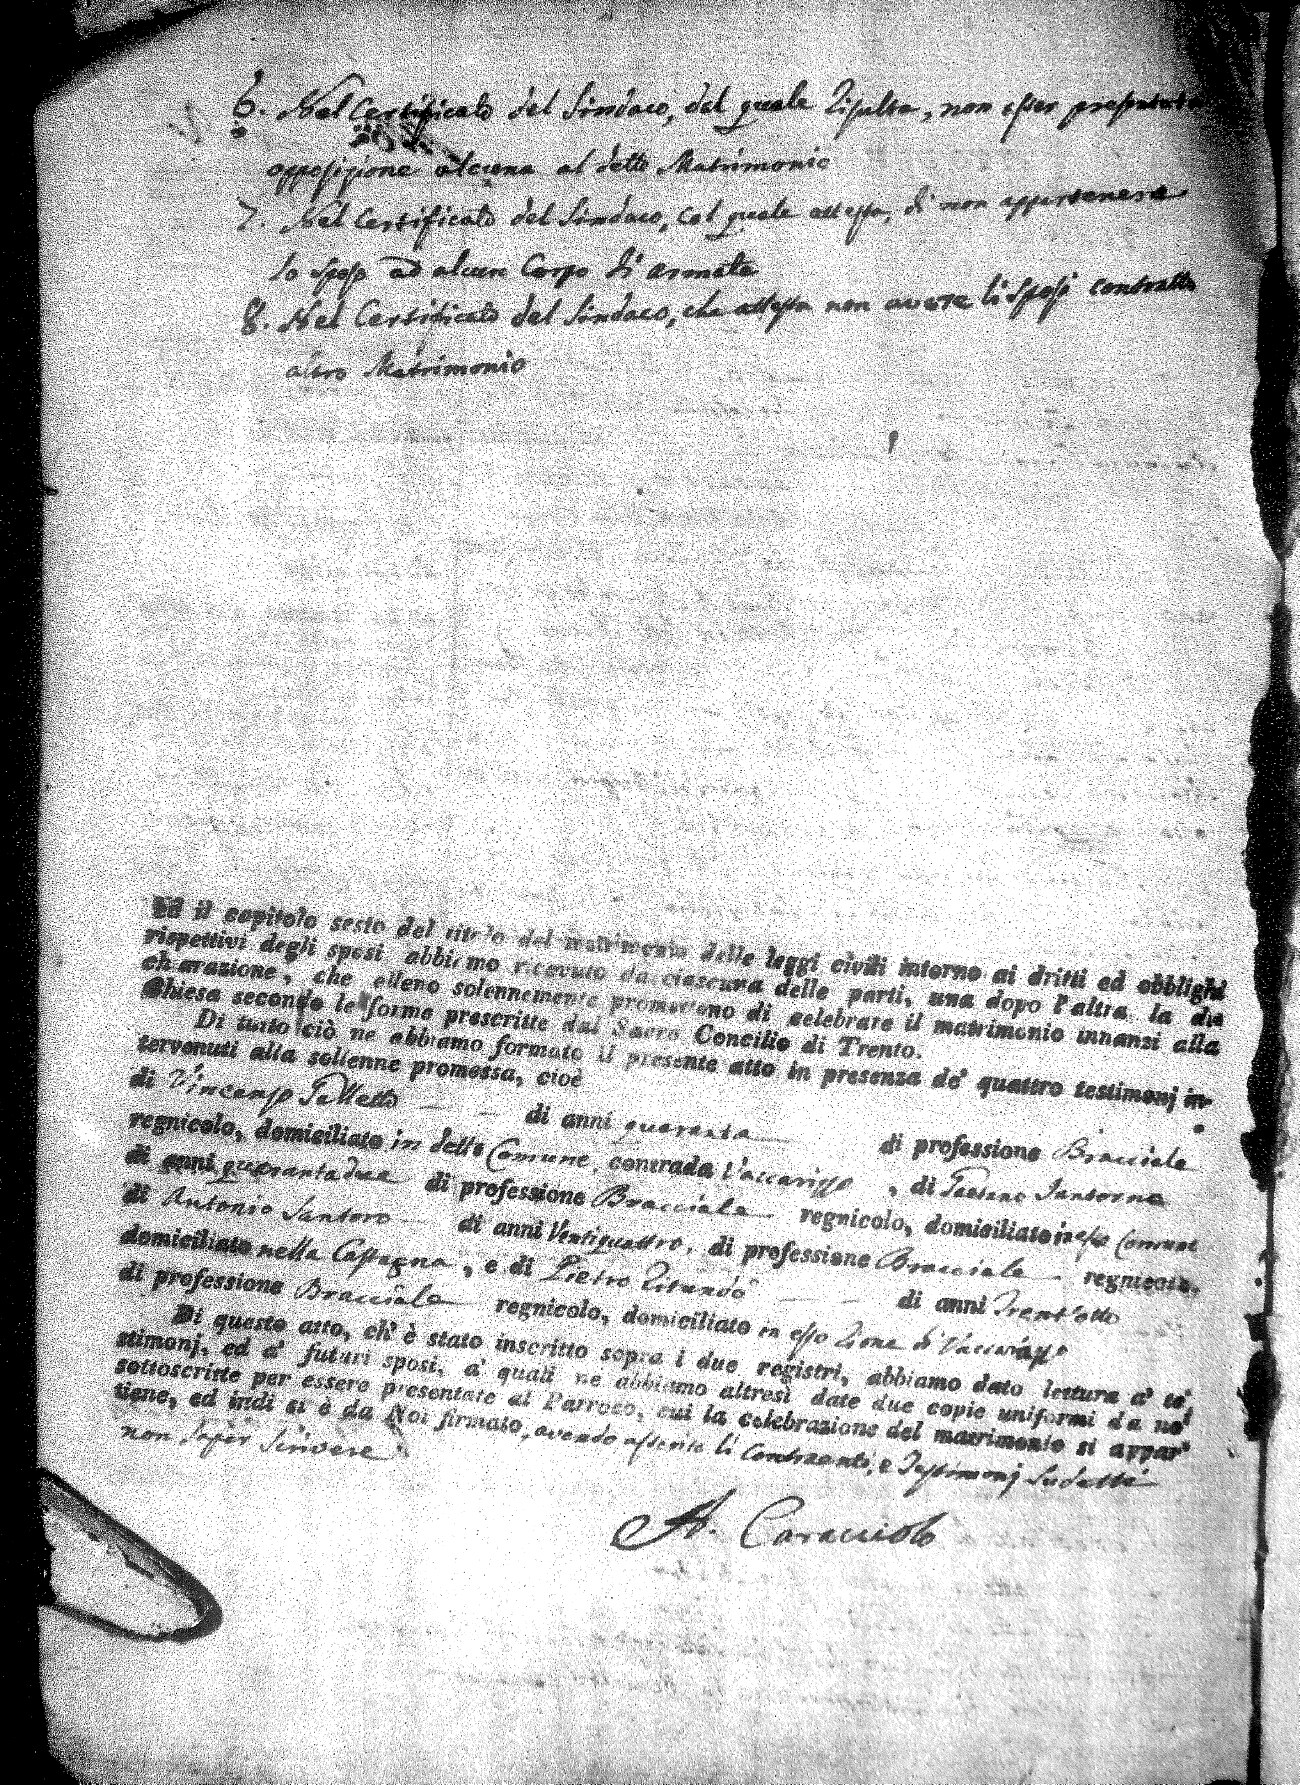 6. Nel Certificato del Sindaco, dal quale Risulta, non esser presentata
opposizione alcuna al detto Matrimonio
7. Nel Certificato del Sindaco, col quale attesta, di non appartenere
lo Sposo ad alcun Corpo d'armata
8. Nel Certificato del Sindaco, che attesta non avere li Sposi contratto
altro Matrimonio
Ed il capitolo sesto del titolo del matrimonio delle leggi civili intorno ai dritti ed obblighi
rispettivi degli sposi abbiamo ricevuto da ciascuna delle parti, una dopo l'altra, la di
chiarazione, che elleno solennemente promettono di celebrare il matrimonio innanzi alla
Chiesa secondo le forme prescritte dal Sacro Concilio di Trento.
Di tutto ciò ne abbiamo formato il presente atto in presenza de' quattro testimonj in-
tervenuti alla solenne promessa, cioè
di Vincenzo Talletto di anni quaranta di professione Bracciale
regnicolo, domiciliato in detto Comune, contrada Vaccarizzo, di Gaetano Santorna
di anni quarantadue di professione Bracciale regnicolo, domiciliato in esso Comune
di Antonio Santoro di anni Ventiquattro, di professione Bracciale regnicolo,
domiciliato nella Castagna, e di Pietro di anni Trent'otto
di professione Bracciale regnicolo, domiciliato in esso Rione di Vaccarizzo
Di questo atto, ch' è stato inscritto sopra i due registri, abbiamo dato lettura a' te
stimonj, ed a' futuri sposi, a' quali ne abbiamo altresì date due copie uniformi da noi
sottoscritte per essere presentate al Parroco, cui la celebrazione del matrimonio si appar
tiene, ed indi si è da Noi firmato, avendo asserito li Contraenti, e Testimonj Sudetti
non saper scrivere
A. Caracciolo